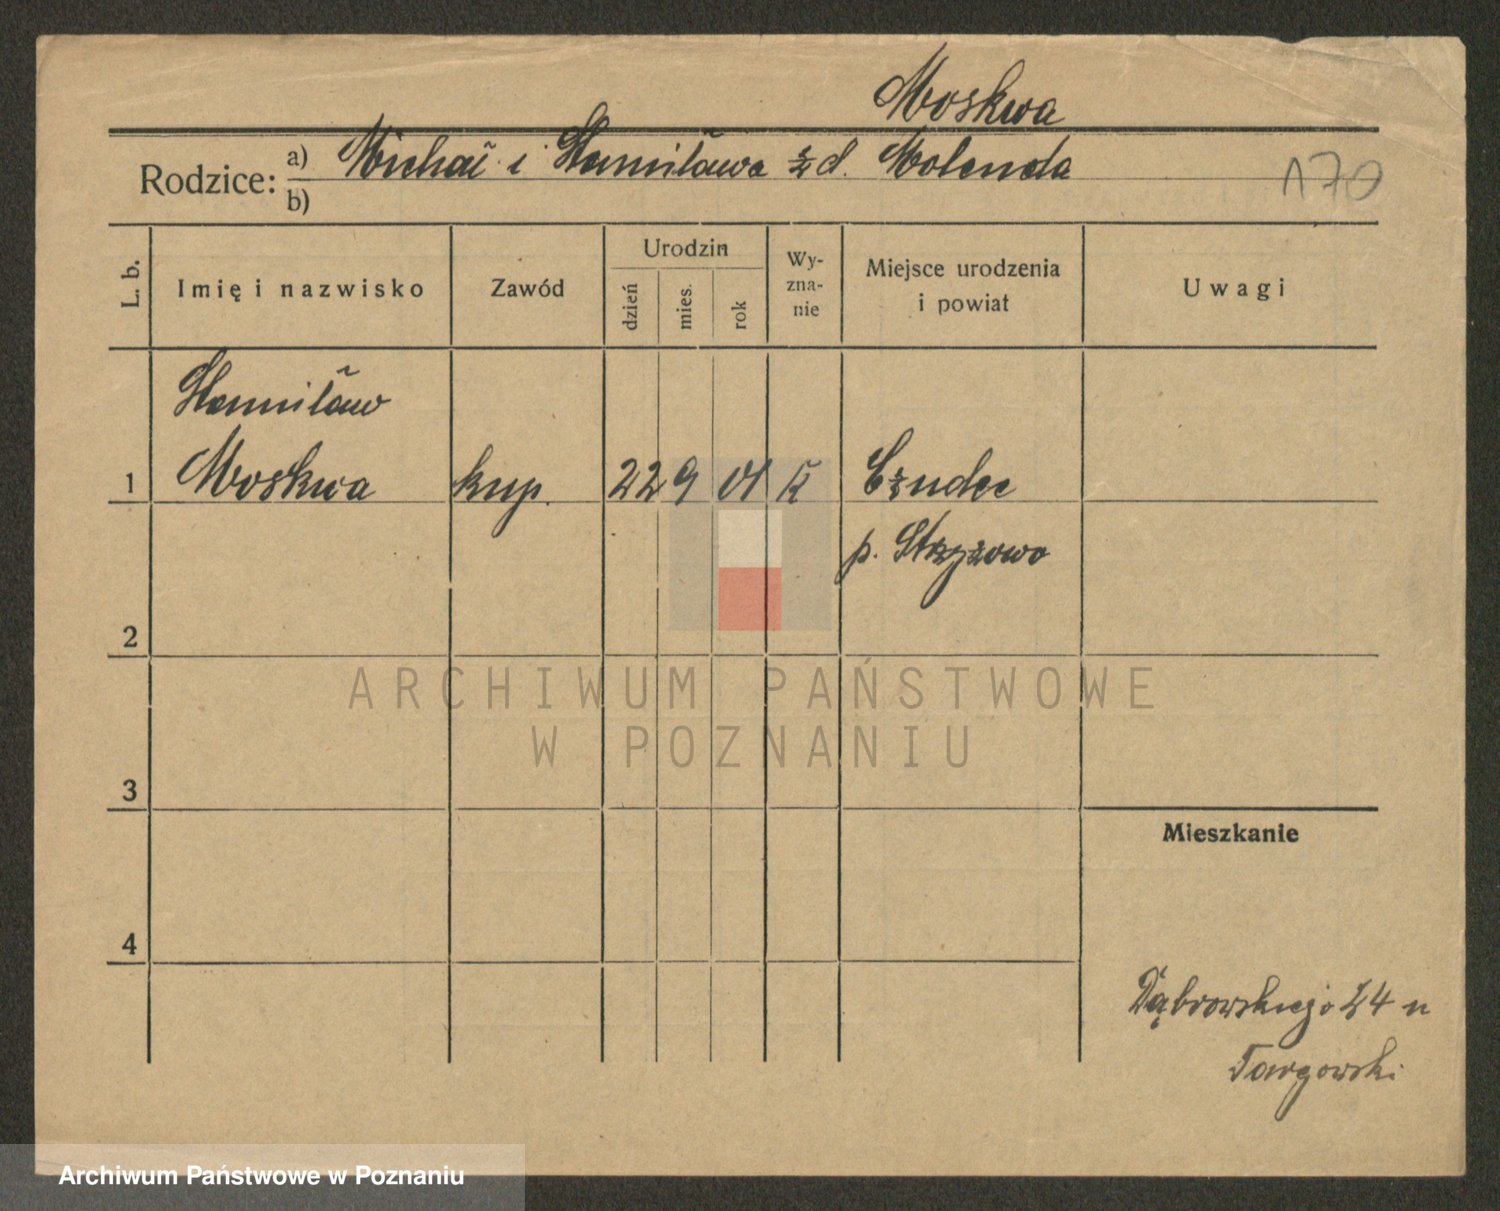 Moskwa
Rodzice: a) Michał i Stanisława z d. Molenda
b)
170
L. b.
Imię i nazwisko
Zawód
Urodzin
dzień
mies.
rok
Wy-
zna-
nie
Miejsce urodzenia
i powiat
Uwagi
Stanisław
1 Moskwa kup. 22 9 01 k Czudec
p. Strzyżowo
2
ARCHIWUM PAŃSTWOWE
W POZNANIU
3
Mieszkanie
4
Dąbrowskiego 24 u
Targowski
Archiwum Państwowe w Poznaniu